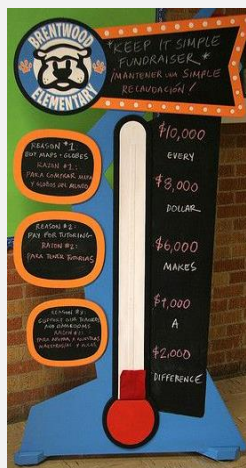 BRENTWOOD
ELEMENTARY
*KEEP IT SIMPLE
FUNDRAISER*
¡MANTENER UNA SIMPLE
RECAUDACIÓN!
REASON #1:
BUY MAPS + GLOBES
RAZON #1:
PARA COMPRAR
Y GLOBOS DEL MUNDO
REASON #2:
PAY FOR TUTORING-
RAZON #2:
PARA TENER TUTORIAS
REASON #3:
SUPPORT OUR TEACHERS
AND CLASSROOMS
RAZON #3:
PARA APOYAR A NUESTROS
MAESTROS/AS Y AULAS
$10,000
EVERY
$8,000
DOLLAR
$6,000
MAKES
$4,000
A
$2,000
DIFFERENCE